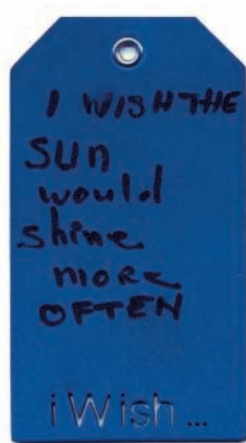 I WISH THE
SUN
would
shine
more
OFTEN
iWish...